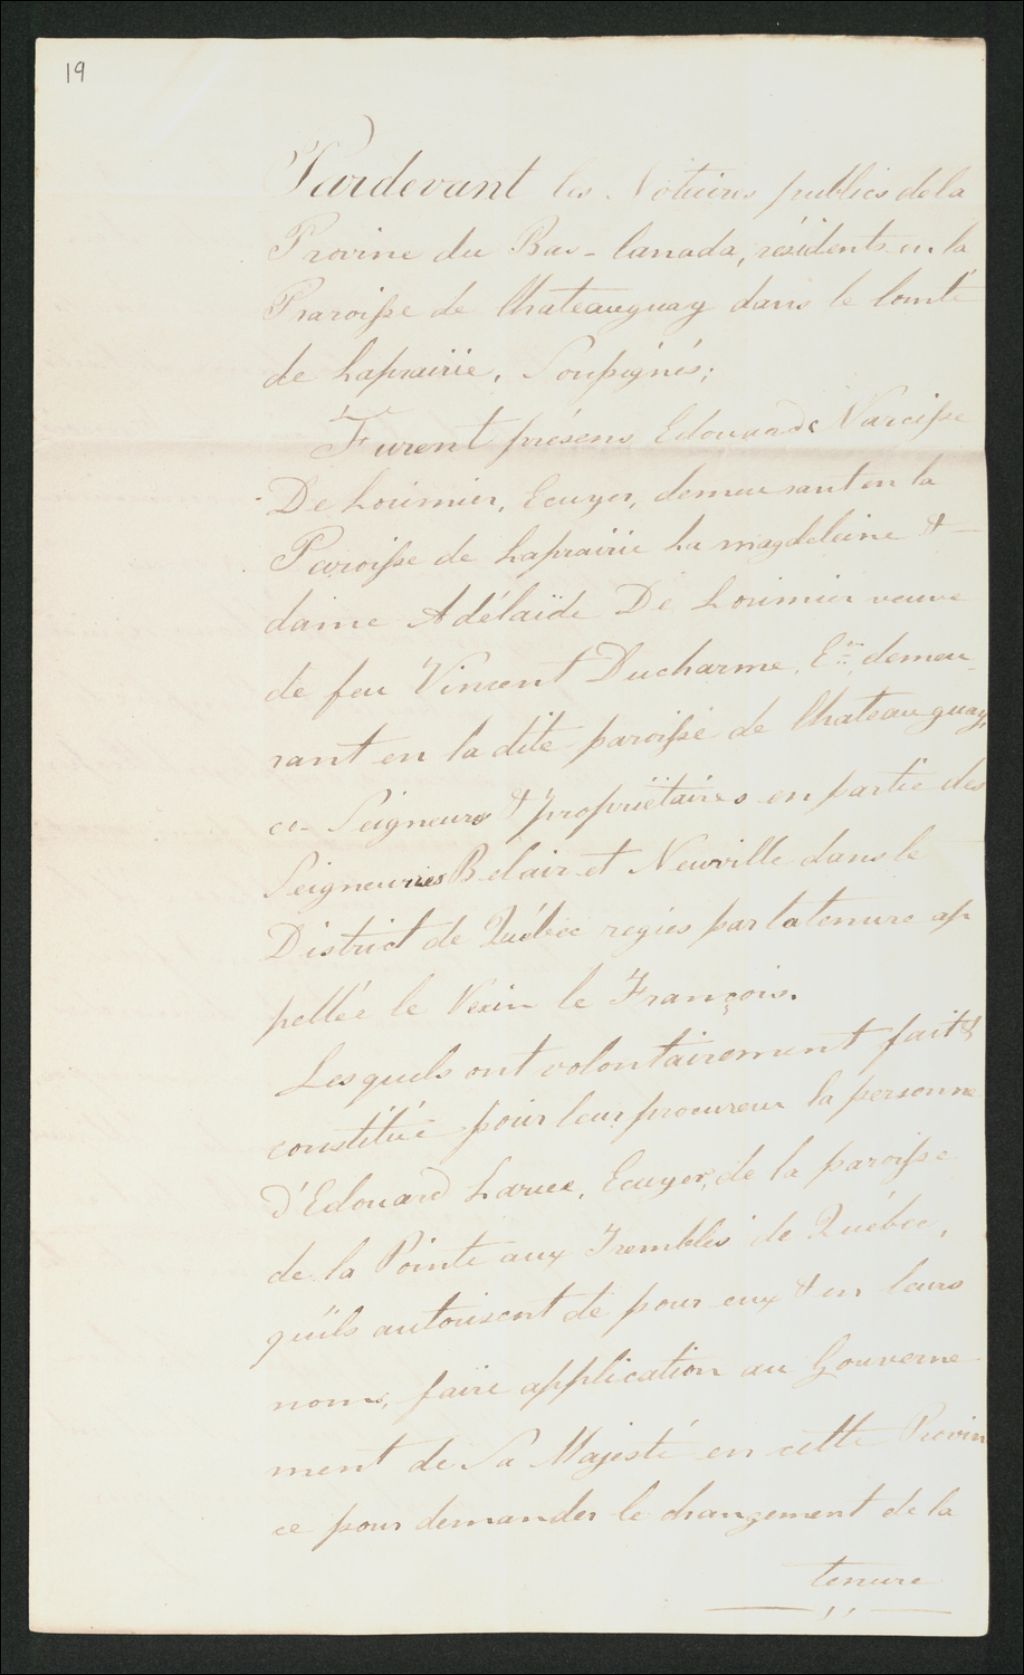 19
Pardevant les Notaires publics de la
Provine du Bas-Canada, résidents en la
Praroisse de Chateauguay dans le Comté
de Laprairie, Soussignés;
Furent présens Edouard Narcisse
De Lorimier, Ecuyer, demeurant en la
Paroisse de Laprairie La magdeleine &
dame Adélaïde De Lorimier veuve
de feu Vincent Ducharme, Ecr. demeu-
rant en la dite paroisse de Chateauguay,
co-Seigneurs & propriëtaires en partie des
Seigneuries Belair et Neuville dans le
District de Québec regies par la tenure ap
pellée le Vexin le François.
Lesquels ont volontairement fait &
constitué pour leur procureur la personne
d'Edouard Larue, Ecuyer, de la paroisse
de la Pointe aux Trembles de Québec,
qu'ils autorisent de pour eux & en leurs
noms, faire application au Gouverne
ment de Sa Majesté en cette Provin
ce pour demander le changement de la
tenure